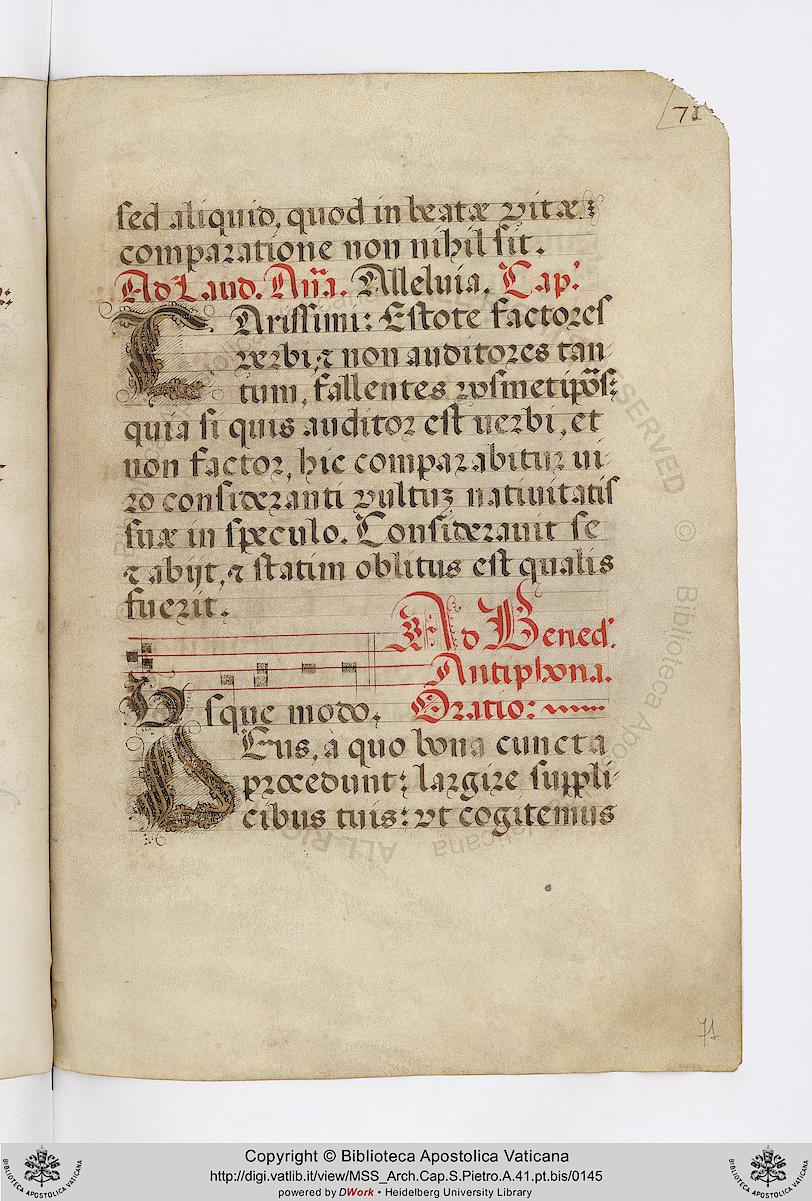 71
sed aliquid, quod in beatæ vitæ
comparatione non nihil sit.
Ad Laud. Aña. Alleluia. Cap.
CArissimi: Estote factores
verbi, ⁊ non auditores tan
tum, fallentes vosmetipōs:
quia si quis auditor est uerbi, et
non factor, hic comparabitur ui-
ro consideranti vultuꝫ natiuitatis
suæ in speculo. Considerauit se
⁊ abijt, ⁊ statim oblitus est qualis
fuerit.
Ad Bened.
Antiphona.
Vsque modo. Oratio:
DEus, a quo bona cuncta
procedunt: largire suppli-
cibus tuis: vt cogitemus
71
Copyright © Biblioteca Apostolica Vaticana
http://digi.vatlib.it/view/MSS_Arch.Cap.S.Pietro.A.41.pt.bis/0145
powered by DWork • Heidelberg University Library